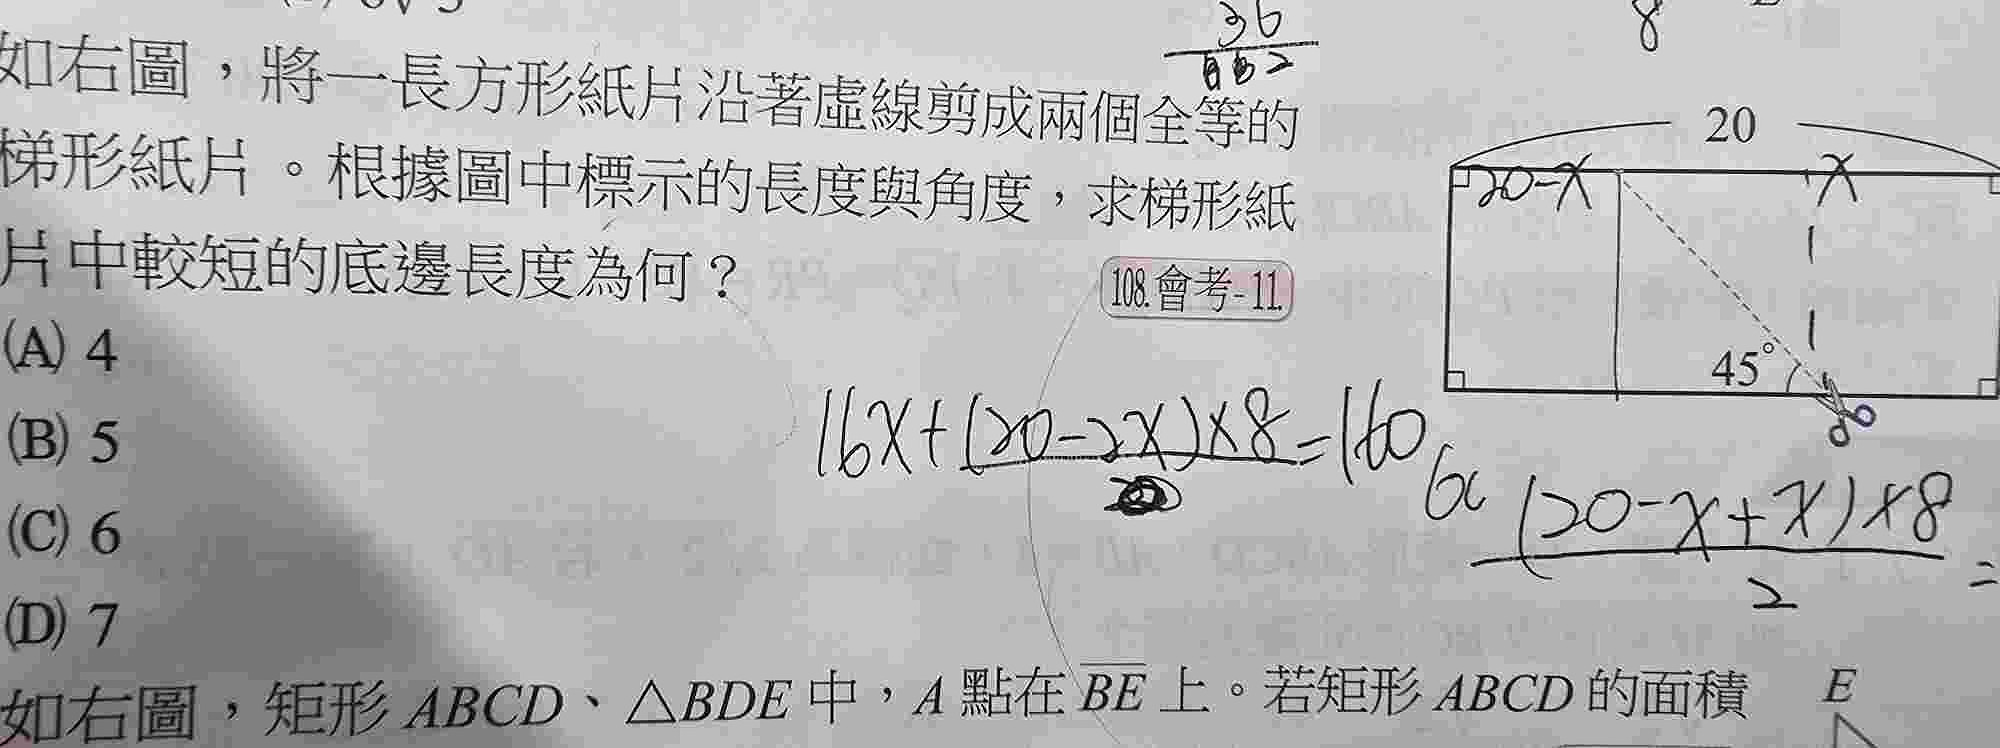 36
2
8
如右圖，將一長方形紙片沿著虛線剪成兩個全等的
梯形紙片。根據圖中標示的長度與角度，求梯形紙
片中較短的底邊長度為何？
108.會考-11.
(A) 4
(B) 5
(C) 6
(D) 7
20
20-x
x
45°
16x+(20-2x)×8=160
(20-x+x)×8
2
=
如右圖，矩形 ABCD、△BDE 中，A 點在 BE 上。若矩形 ABCD 的面積
E